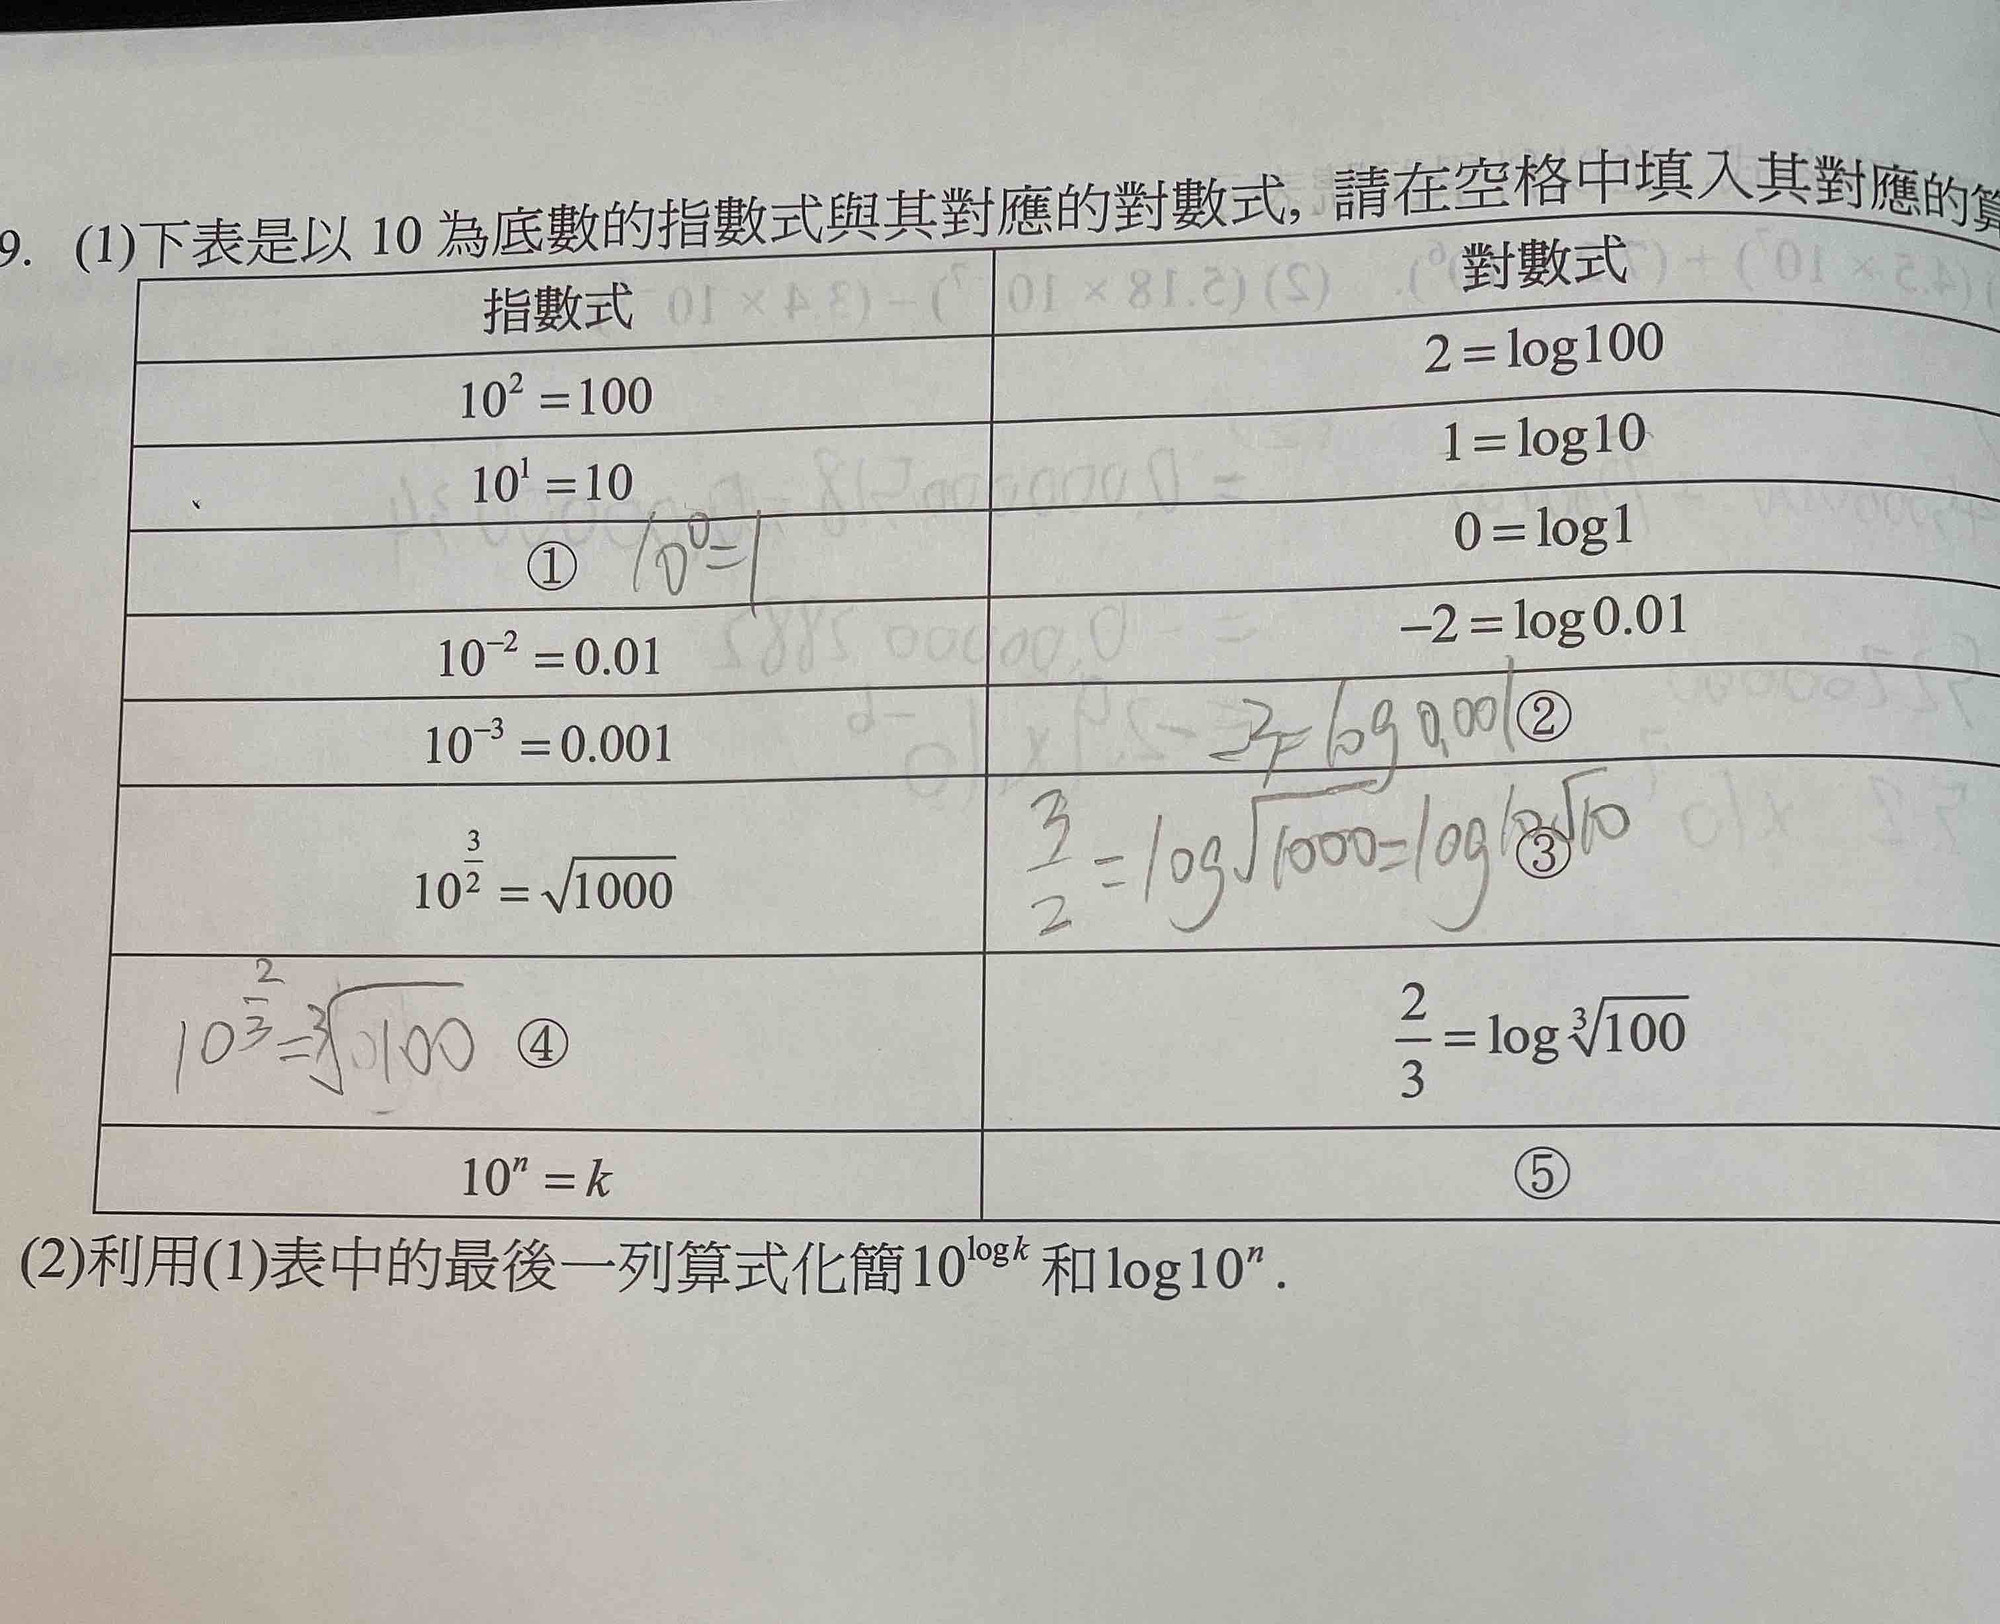 9. (1)下表是以 10 為底數的指數式與其對應的對數式, 請在空格中填入其對應的算
指數式 對數式
10² = 100 2 = log100
10¹ = 10 1 = log10
① 10⁰=1 0 = log1
10⁻² = 0.01 −2 = log0.01
10⁻³ = 0.001 -3=log0.001 ②
10^(3/2) = √1000 3/2 = log√1000=log10√10 ③
10^(2/3)=∛100 ④ 2/3 = log∛100
10ⁿ = k ⑤
(2)利用(1)表中的最後一列算式化簡10^(log k) 和log10ⁿ.